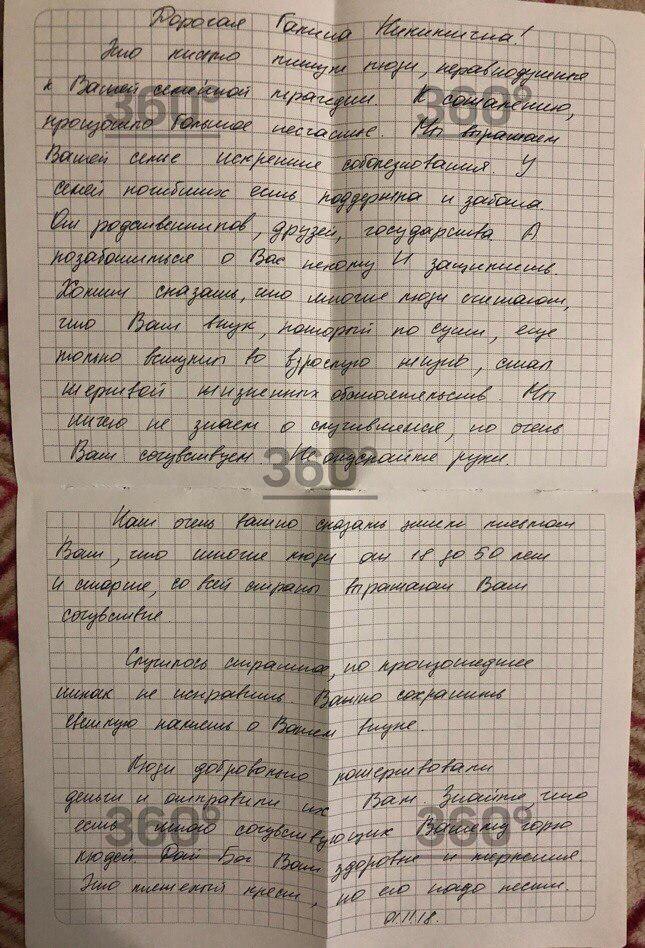 Дорогая Галина Никитична!
Это письмо пишут люди, неравнодушные
к Вашей семейной трагедии. К сожалению,
произошло большое несчастье. Мы выражаем
Вашей семье искренние соболезнования. У
семей погибших есть поддержка и забота.
От родственников, друзей, государства. А
позаботиться о Вас некому И защитить.
Хотим сказать, что многие люди считают,
что Ваш внук, который по сути, еще
только вступил во взрослую жизнь, стал
жертвой жизненных обстоятельств. Мы
ничего не знаем о случившемся, но очень
Вам сочувствуем. Не опускайте руки.
Нам очень важно сказать этим письмом
Вам, что многие люди от 18 до 50 лет
и старше, со всей страны выражают Вам
сочувствие
Случилось страшное, но произошедшее
никак не исправить. Важно сохранить
светлую память о Вашем внуке.
Люди добровольно пожертвовали
деньги и отправили их Вам Знайте, что
есть много сочувствующих Вашему горю
людей. Дай Бог Вам здоровье и терпения.
Это тяжелый крест, но его надо нести.
01.11.18.
360°
360°
360°
360°
360°